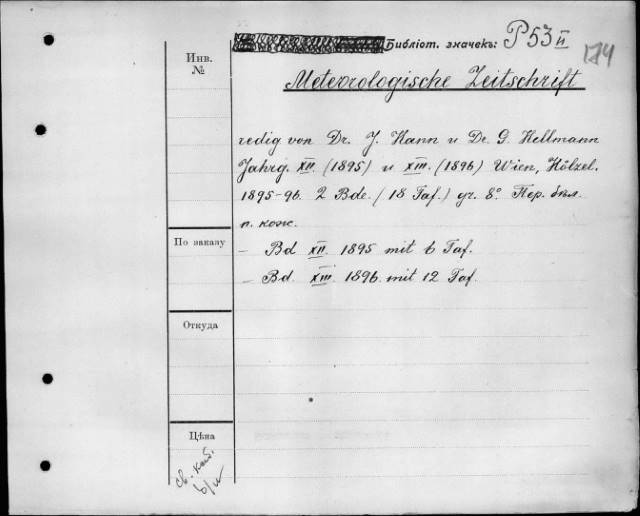 Библіот. значекъ: P 53 II
174
Инв.
№
Meteorologische Zeitschrift
redig von Dr. J. Hann u Dr. G. Hellmann
Jahrg. XII. (1895) u XIII. (1896) Wien, Hölzel.
1895-96. 2 Bde. (18 Taf.) gr. 8° Пер. бѣл.
п. кож.
По заказу
— Bd XII. 1895 mit 6 Taf.
— Bd. XIII 1896. mit 12 Taf.
Откуда
Цѣна
св. каб.
б/и